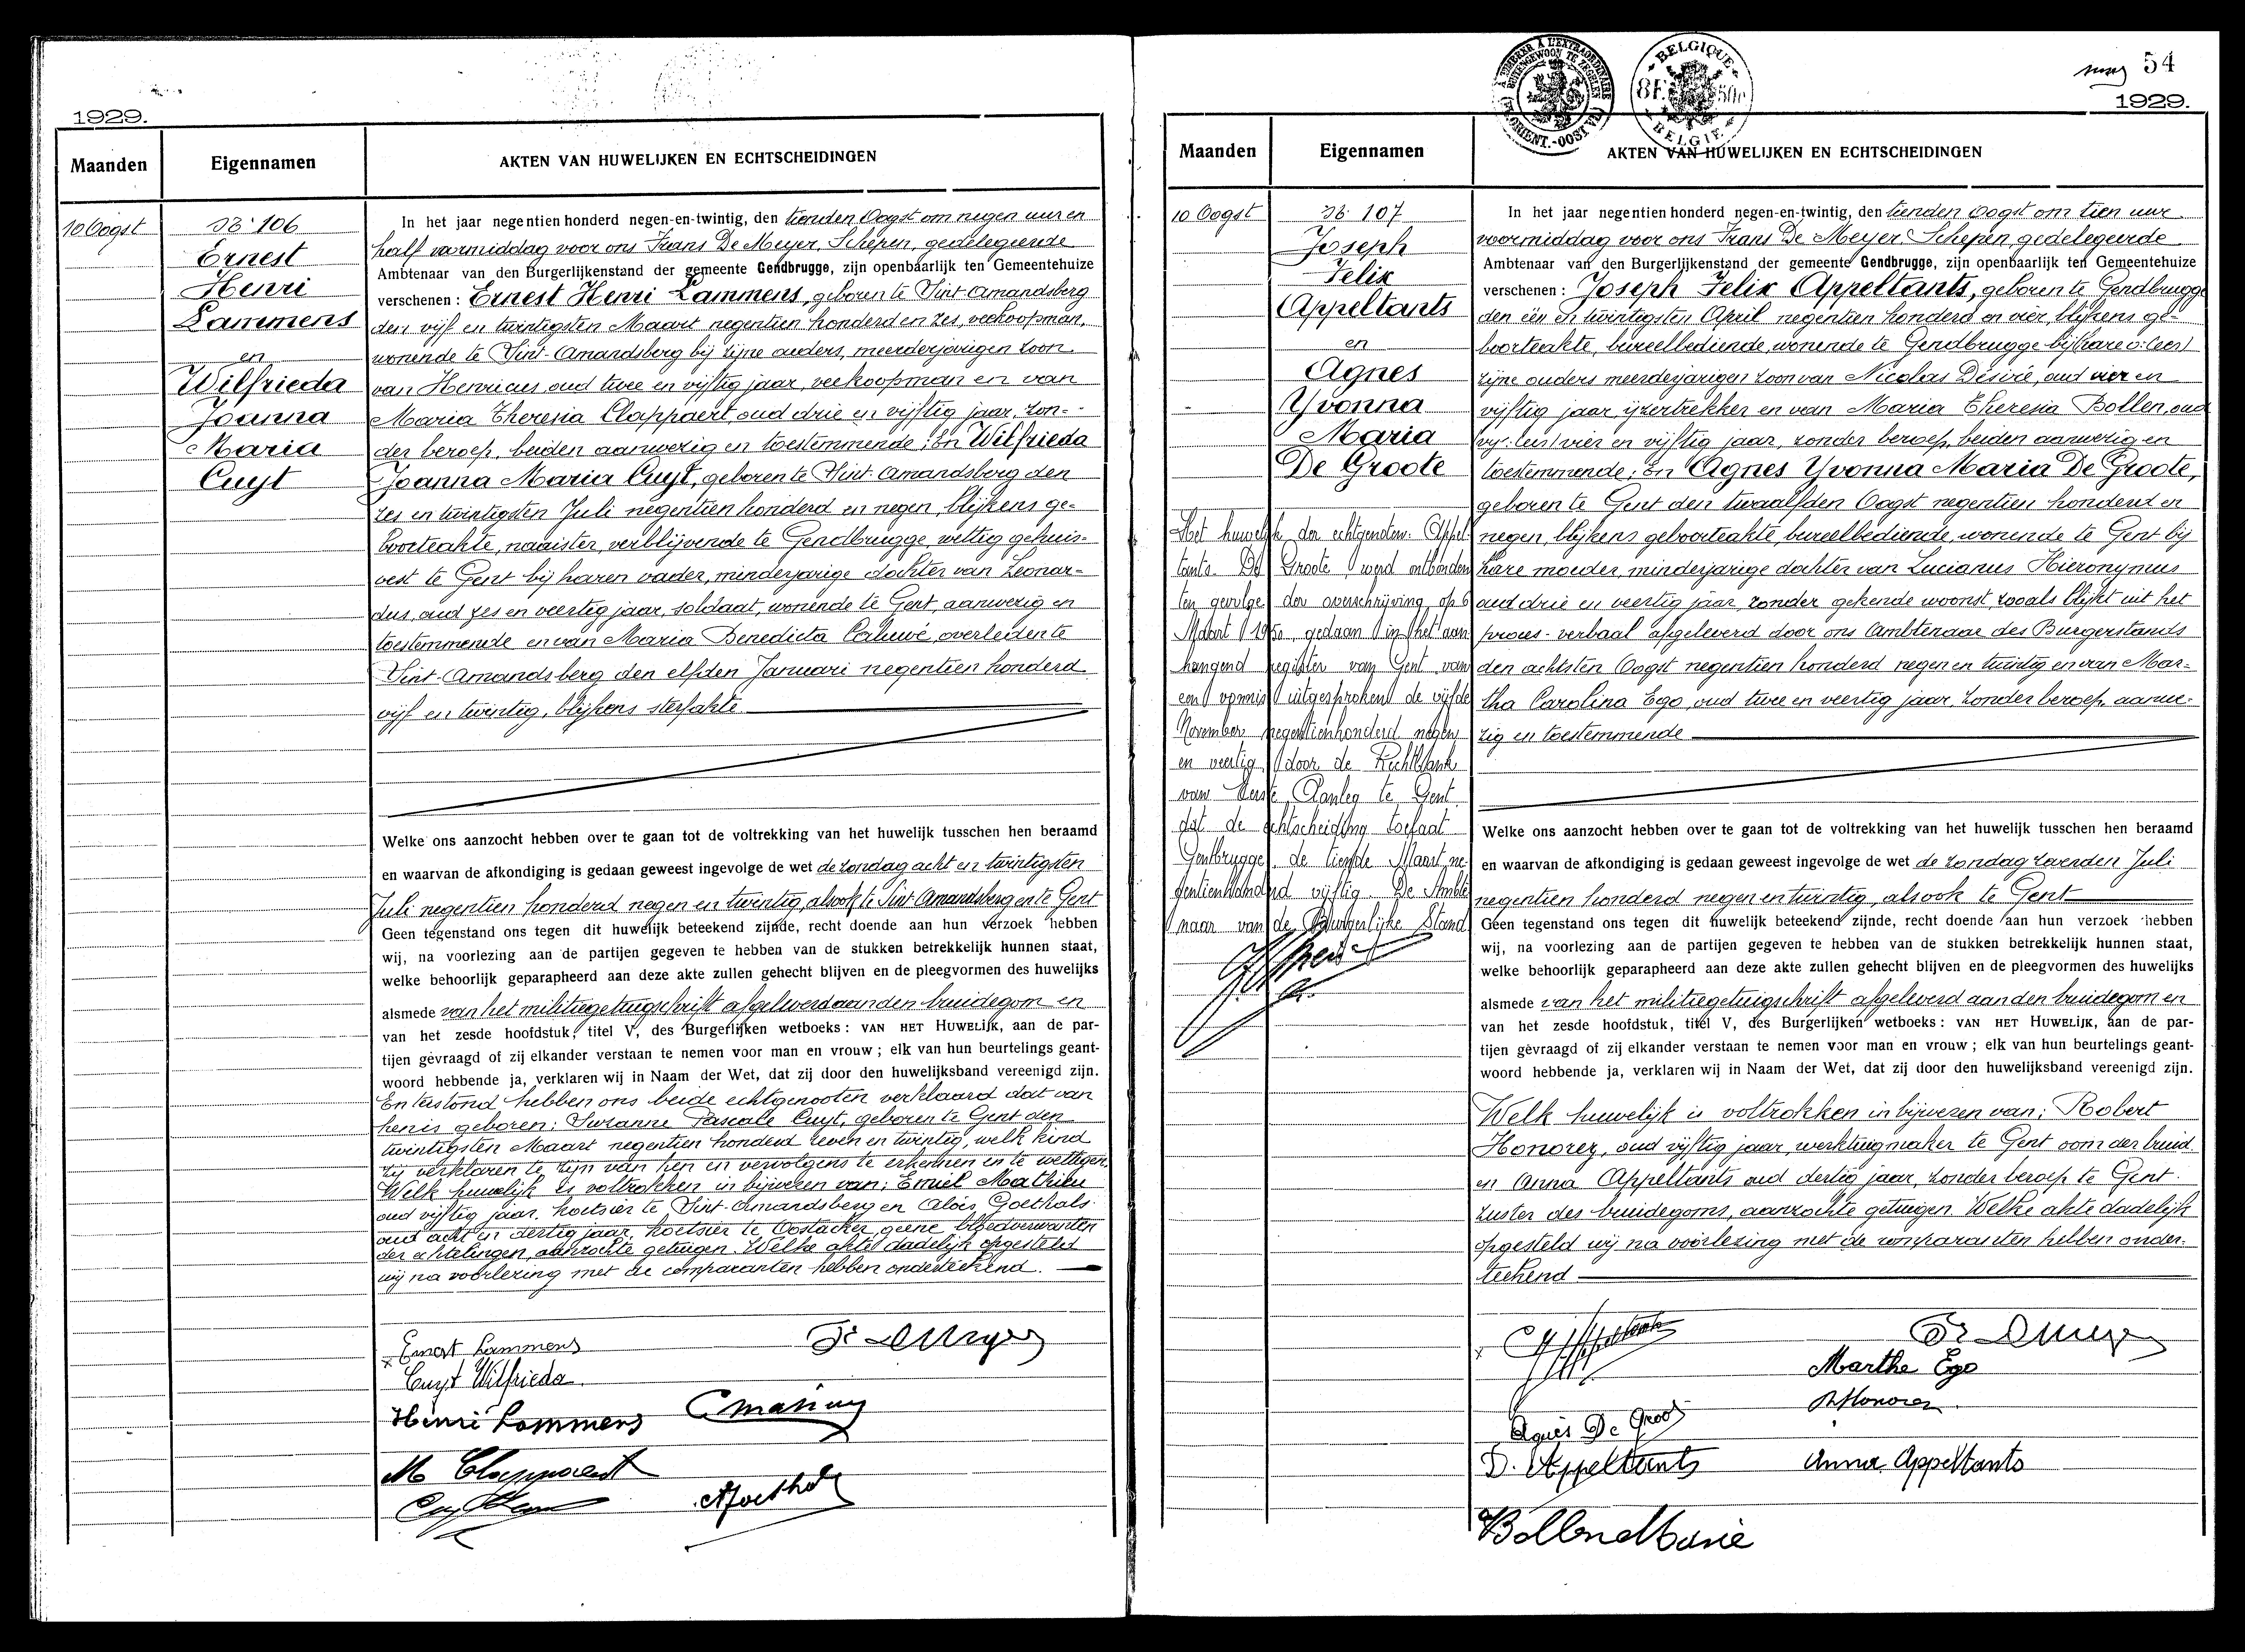 1929.
Maanden
Eigennamen
AKTEN VAN HUWELIJKEN EN ECHTSCHEIDINGEN
10 Oogst
Nr 106
Ernest
Henri
Lammens
en
Wilfrieda
Joanna
Maria
Cuyt
In het jaar negentien honderd negen-en-twintig, den tienden Oogst om negen uur en
half voormiddag voor ons Frans De Meyer, Schepen, gedelegeerde
Ambtenaar van den Burgerlijkenstand der gemeente Gendbrugge, zijn openbaarlijk ten Gemeentehuize
verschenen : Ernest Henri Lammens, geboren te Sint Amandsberg
den vijf en twintigsten Maart negentien honderd en zes, verkoopman,
wonende te Sint-Amandsberg bij zijne ouders, meerderjarigen zoon
van Henricus oud twee en vijftig jaar, verkoopman en van
Maria Theresia Clappaert, oud drie en vijftig jaar, zon-
der beroep, beiden aanwezig en toestemmende ; En Wilfrieda
Joanna Maria Cuyt, geboren te Sint-Amandsberg den
zes en twintigsten Juli negentien honderd en negen, blijkens ge-
boorteakte, naaister, verblijvende te Gendbrugge, wettig gehuis-
vest te Gent bij haren vader, minderjarige dochter van Leonar-
dus, oud zes en veertig jaar, soldaat, wonende te Gent, aanwezig en
toestemmende en van Maria Benedicta Caluwé, overleden te
Sint-Amandsberg den elfden Januari negentien honderd
vijf en twintig, blijkens sterfakte
Welke ons aanzocht hebben over te gaan tot de voltrekking van het huwelijk tusschen hen beraamd
en waarvan de afkondiging is gedaan geweest ingevolge de wet de zondag acht en twintigsten
Juli negentien honderd negen en twintig, alsook te Sint Amandsberg en te Gent
Geen tegenstand ons tegen dit huwelijk beteekend zijnde, recht doende aan hun verzoek hebben
wij, na voorlezing aan de partijen gegeven te hebben van de stukken betrekkelijk hunnen staat,
welke behoorlijk geparapheerd aan deze akte zullen gehecht blijven en de pleegvormen des huwelijks
alsmede van het militiegetuigschrift afgeleverd aan den bruidegom en
van het zesde hoofdstuk, titel V, des Burgerlijken wetboeks : VAN HET HUWELIJK, aan de par-
tijen gevraagd of zij elkander verstaan te nemen voor man en vrouw ; elk van hun beurtelings geant-
woord hebbende ja, verklaren wij in Naam der Wet, dat zij door den huwelijksband vereenigd zijn.
En terstond hebben ons beide echtgenooten verklaard dat van
hen is geboren : Suzanne Pascale Cuyt, geboren te Gent den
twintigsten Maart negentien honderd zeven en twintig, welk kind
zij verklaren te zijn van hen en vervolgens te erkennen en te wettigen.
Welk huwelijk is voltrokken in bijwezen van : Emiel Mathieu
oud vijftig jaar, koetsier te Sint-Amandsberg en Alois Goethals
oud acht en dertig jaar, koetsier te Oostacker, geene bloedverwanten
der echtelingen, aanzochte getuigen. Welke akte dadelijk opgesteld
wij na voorlezing met de comparanten hebben onderteekend.
Ernest Lammens
Cuyt Wilfrieda
Henri Lammens
M Clappaert
54
1929.
Maanden
Eigennamen
AKTEN VAN HUWELIJKEN EN ECHTSCHEIDINGEN
BELGIQUE
8F 50c
BELGIE
10 Oogst
Nr 107
Joseph
Felix
Appeltants
en
Agnes
Yvonna
Maria
De Groote
Het huwelijk der echtgenoten Appel
tants De Groote werd ontbonden
ten gevolge der overschrijving op 6
Maart 1950 gedaan in het aan
hangend register van Gent van
een vonnis uitgesproken de vijfde
November negentienhonderd negen
en veertig door de Rechtbank
van Eerste Aanleg te Gent
dat de echtscheiding toelaat
Gentbrugge de tiende Maart ne
gentienhonderd vijftig. De Ambte
naar van de Burgerlijke Stand
In het jaar negentien honderd negen-en-twintig, den tienden Oogst om tien uur
voormiddag voor ons Frans De Meyer Schepen gedelegeerde
Ambtenaar van den Burgerlijkenstand der gemeente Gendbrugge, zijn openbaarlijk ten Gemeentehuize
verschenen : Joseph Felix Appeltants, geboren te Gendbrugge
den één en twintigsten April negentien honderd en vier, blijkens ge-
boorteakte, bureelbediende, wonende te Gendbrugge bij (hare o: lees)
zijne ouders meerderjarigen zoon van Nicolas Désiré, oud vier en
vijftig jaar, ijzertrekker en van Maria Theresia Bollen, oud
(vij: lees) vier en vijftig jaar, zonder beroep, beiden aanwezig en
toestemmende ; En Agnes Yvonna Maria De Groote,
geboren te Gent den twaalfden Oogst negentien honderd en
negen, blijkens geboorteakte, bureelbediende, wonende te Gent bij
hare moeder, minderjarige dochter van Lucianus Hieronymus
oud drie en veertig jaar zonder gekende woonst, zooals blijkt uit het
proces-verbaal afgeleverd door ons Ambtenaar des Burgerstands
den achtsten Oogst negentien honderd negen en twintig en van Mar-
tha Carolina Ego, oud twee en veertig jaar, zonder beroep, aanwe-
zig en toestemmende
Welke ons aanzocht hebben over te gaan tot de voltrekking van het huwelijk tusschen hen beraamd
en waarvan de afkondiging is gedaan geweest ingevolge de wet de zondag zevenden Juli
negentien honderd negen en twintig, alsook te Gent
Geen tegenstand ons tegen dit huwelijk beteekend zijnde, recht doende aan hun verzoek hebben
wij, na voorlezing aan de partijen gegeven te hebben van de stukken betrekkelijk hunnen staat,
welke behoorlijk geparapheerd aan deze akte zullen gehecht blijven en de pleegvormen des huwelijks
alsmede van het militiegetuigschrift afgeleverd aan den bruidegom en
van het zesde hoofdstuk, titel V, des Burgerlijken wetboeks : VAN HET HUWELIJK, aan de par-
tijen gevraagd of zij elkander verstaan te nemen voor man en vrouw ; elk van hun beurtelings geant-
woord hebbende ja, verklaren wij in Naam der Wet, dat zij door den huwelijksband vereenigd zijn.
Welk huwelijk is voltrokken in bijwezen van : Robert
Honorez, oud vijftig jaar, werktuigmaker te Gent oom der bruid
en Anna Appeltants oud dertig jaar, zonder beroep te Gent
zuster des bruidegoms, aanzochte getuigen. Welke akte dadelijk
opgesteld wij na voorlezing met de comparanten hebben onder-
teekend
Marthe Ego
RHonorez
Agnès De Groote
D. Appeltants
Anna Appeltants
Bollen Marie